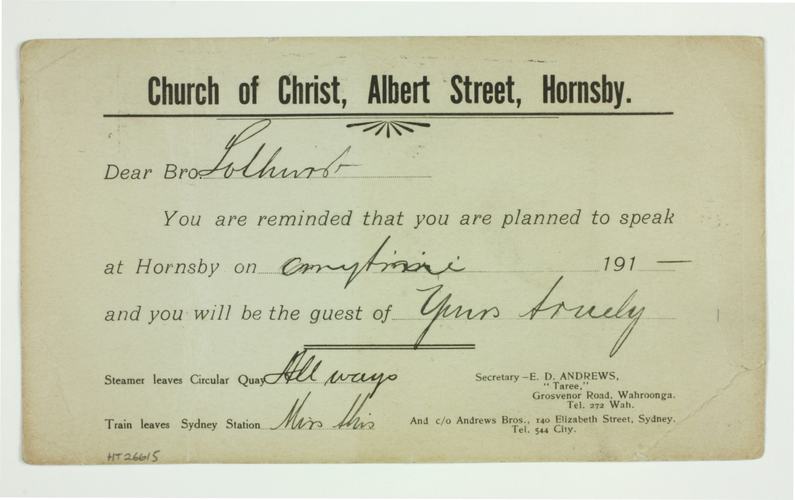 Church of Christ, Albert Street, Hornsby.
Dear Bro. Lothurst
You are reminded that you are planned to speak
at Hornsby on anytime 191 —
and you will be the guest of Yours truely
Steamer leaves Circular Quay All ways
Train leaves Sydney Station Miss this
Secretary—E. D. ANDREWS,
"Taree,"
Grosvenor Road, Wahroonga.
Tel. 272 Wah.
And c/o Andrews Bros., 140 Elizabeth Street, Sydney.
Tel. 544 City.
HT 26615